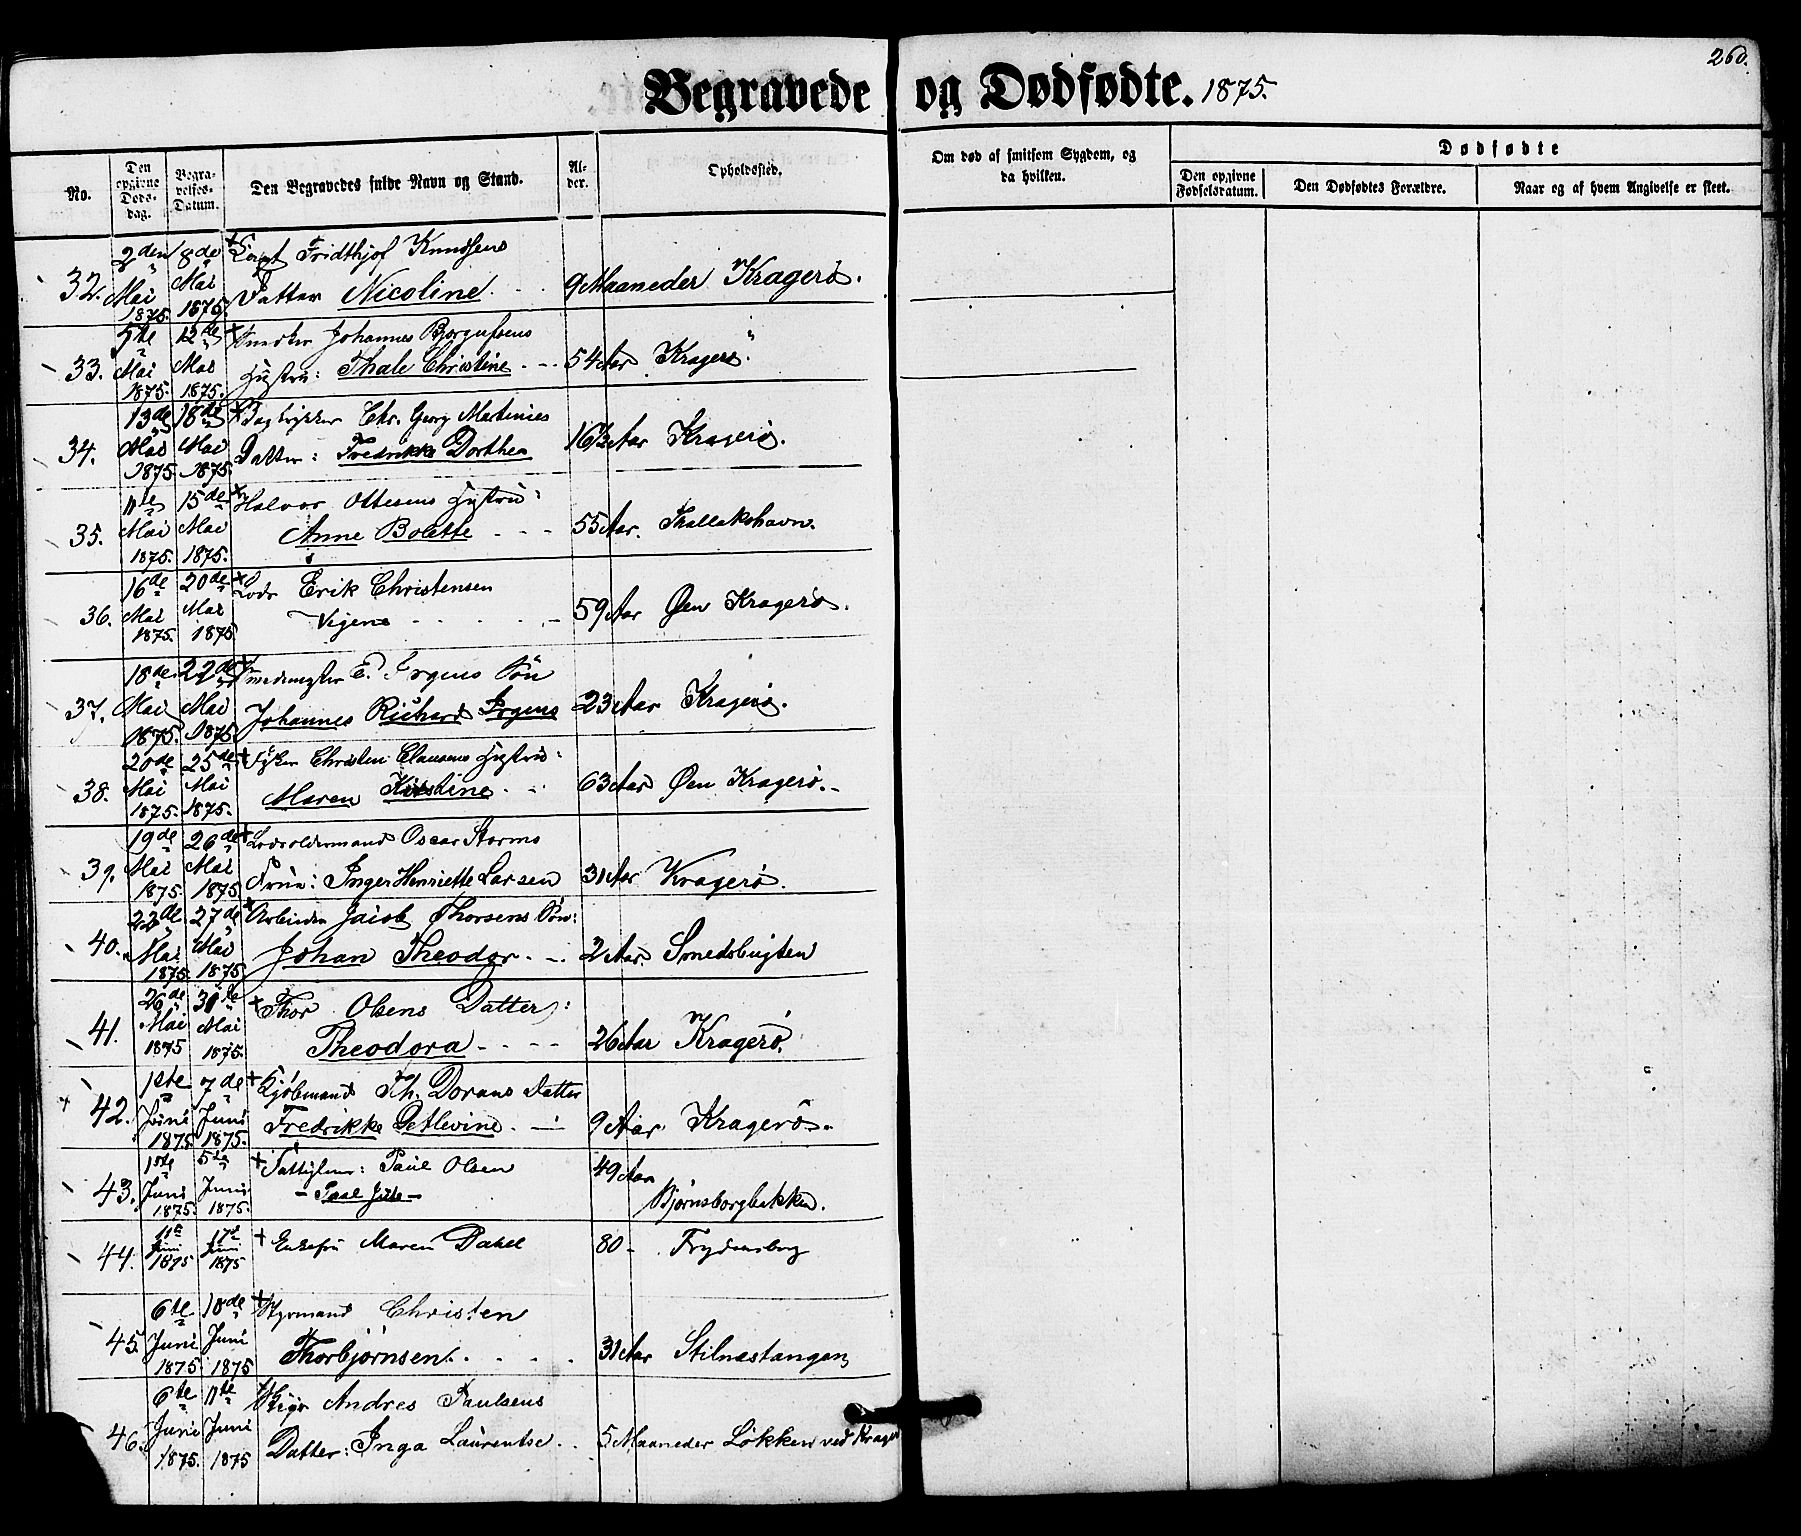 260.
Begravede og Dødfødte. 1875.
No.
Den opgivne Døds-dag.
Begra-velses-Datum.
Den Begravedes fulde Navn og Stand.
Al-der.
Opholdssted.
Om død af smitsom Sygdom, og da hvilken.
Dødfødte
Den opgivne Fødselsdatum.
Den Dødfødtes Forældre.
Naar og af hvem Angivelse er skeet.
32. 2den Mai 1875. 8de Mai 1875. Capt Fridthjof Knudsens
Datter Nicoline. 9 Maaneder Kragerø.
33. 5te Mai 1875. 12de Mai 1875. Snedker Johannes Bjorgufsens
Hustru: Thale Christine. 54 Aar Kragerø.
34. 13de Mai 1875. 18de Mai 1875. Bogtrykker Chr. Georg Martinies
Datter: Fredrikke Dorthea 16½ Aar Kragerø.
35. 11te Mai 1875. 15de Mai 1875. Halvor Ottesens Hustru:
Anne Bolette 55 Aar. Thallakshavn.
36. 16de Mai 1875. 20de Mai 1875 Lods Erik Christensen
Vejene 59 Aar Øen Kragerø.
37. 18de Mai 1875. 22de Mai 1875 Smedemester E. Irgens Søn
Johannes Richard Irgens 23 Aar Kragerø.
38. 20de Mai 1875. 25de Mai 1875. Fisker Christen Clausens Hustru:
Maren Kirstine 63 Aar Øen Kragerø.
39. 19de Mai 1875. 26de Mai 1875 Lodsoldermand Oscar Storms
Frue: Inger Henriette Larsen 31 Aar Kragerø.
40. 22de Mai 1875. 27de Mai 1875 Arbeider Jacob Thorsens Søn:
Johan Theodor. 2 Aar. Smedsbugten
41. 26de Mai 1875 31te Mai 1875. Thor Olsens Datter:
Theodora 26 Aar Kragerø.
42. 1ste Juni 1875. 7de Juni 1875. Kjøbmand Th. Dorans Datter
Fredrikke Detlevine. 9 Aar Kragerø.
43. 1ste Juni 1875. 5te Juni 1875. Fattiglem: Paul Olsen
49 Aar
Bjørnsborgbakken.
44. 11te Juni 1875 17de Juni 1875 Enkefru Maren Dahll 80 - Frydensborg
45. 6te Juni 1875 10de Juni 1875 Styrmand Christen
Thorbjørnsen. 31 Aar Stilnestangen
46. 6te Juni 1875. 11te Juni 1875 Skipr Andres Paulsens
Datter: Inga Laurentse. 5 Maaneder Løkken ved Krager